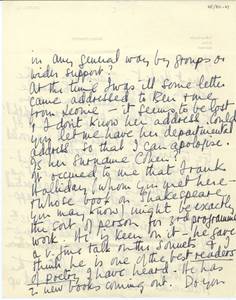 in any general way by groups or
wider support?
At this time I was ill some letter
came addressed to Ken & me
from Leonie — it seems to be lost
& I don't know her address. Could
you let me have her departmental
address so that I can apologise.
Is her surname Cohen?
It occurred to me that Frank
Halliday, whom you met here –
(whose book on Shakespeare
you may know) might be exactly
the sort of person for 3rd programme
work. He is keen on it — he gave
a v. fine talk on the Sonnets & I
think he is one of the best readers
of poetry I have heard. He has
2 new books coming out. Do you